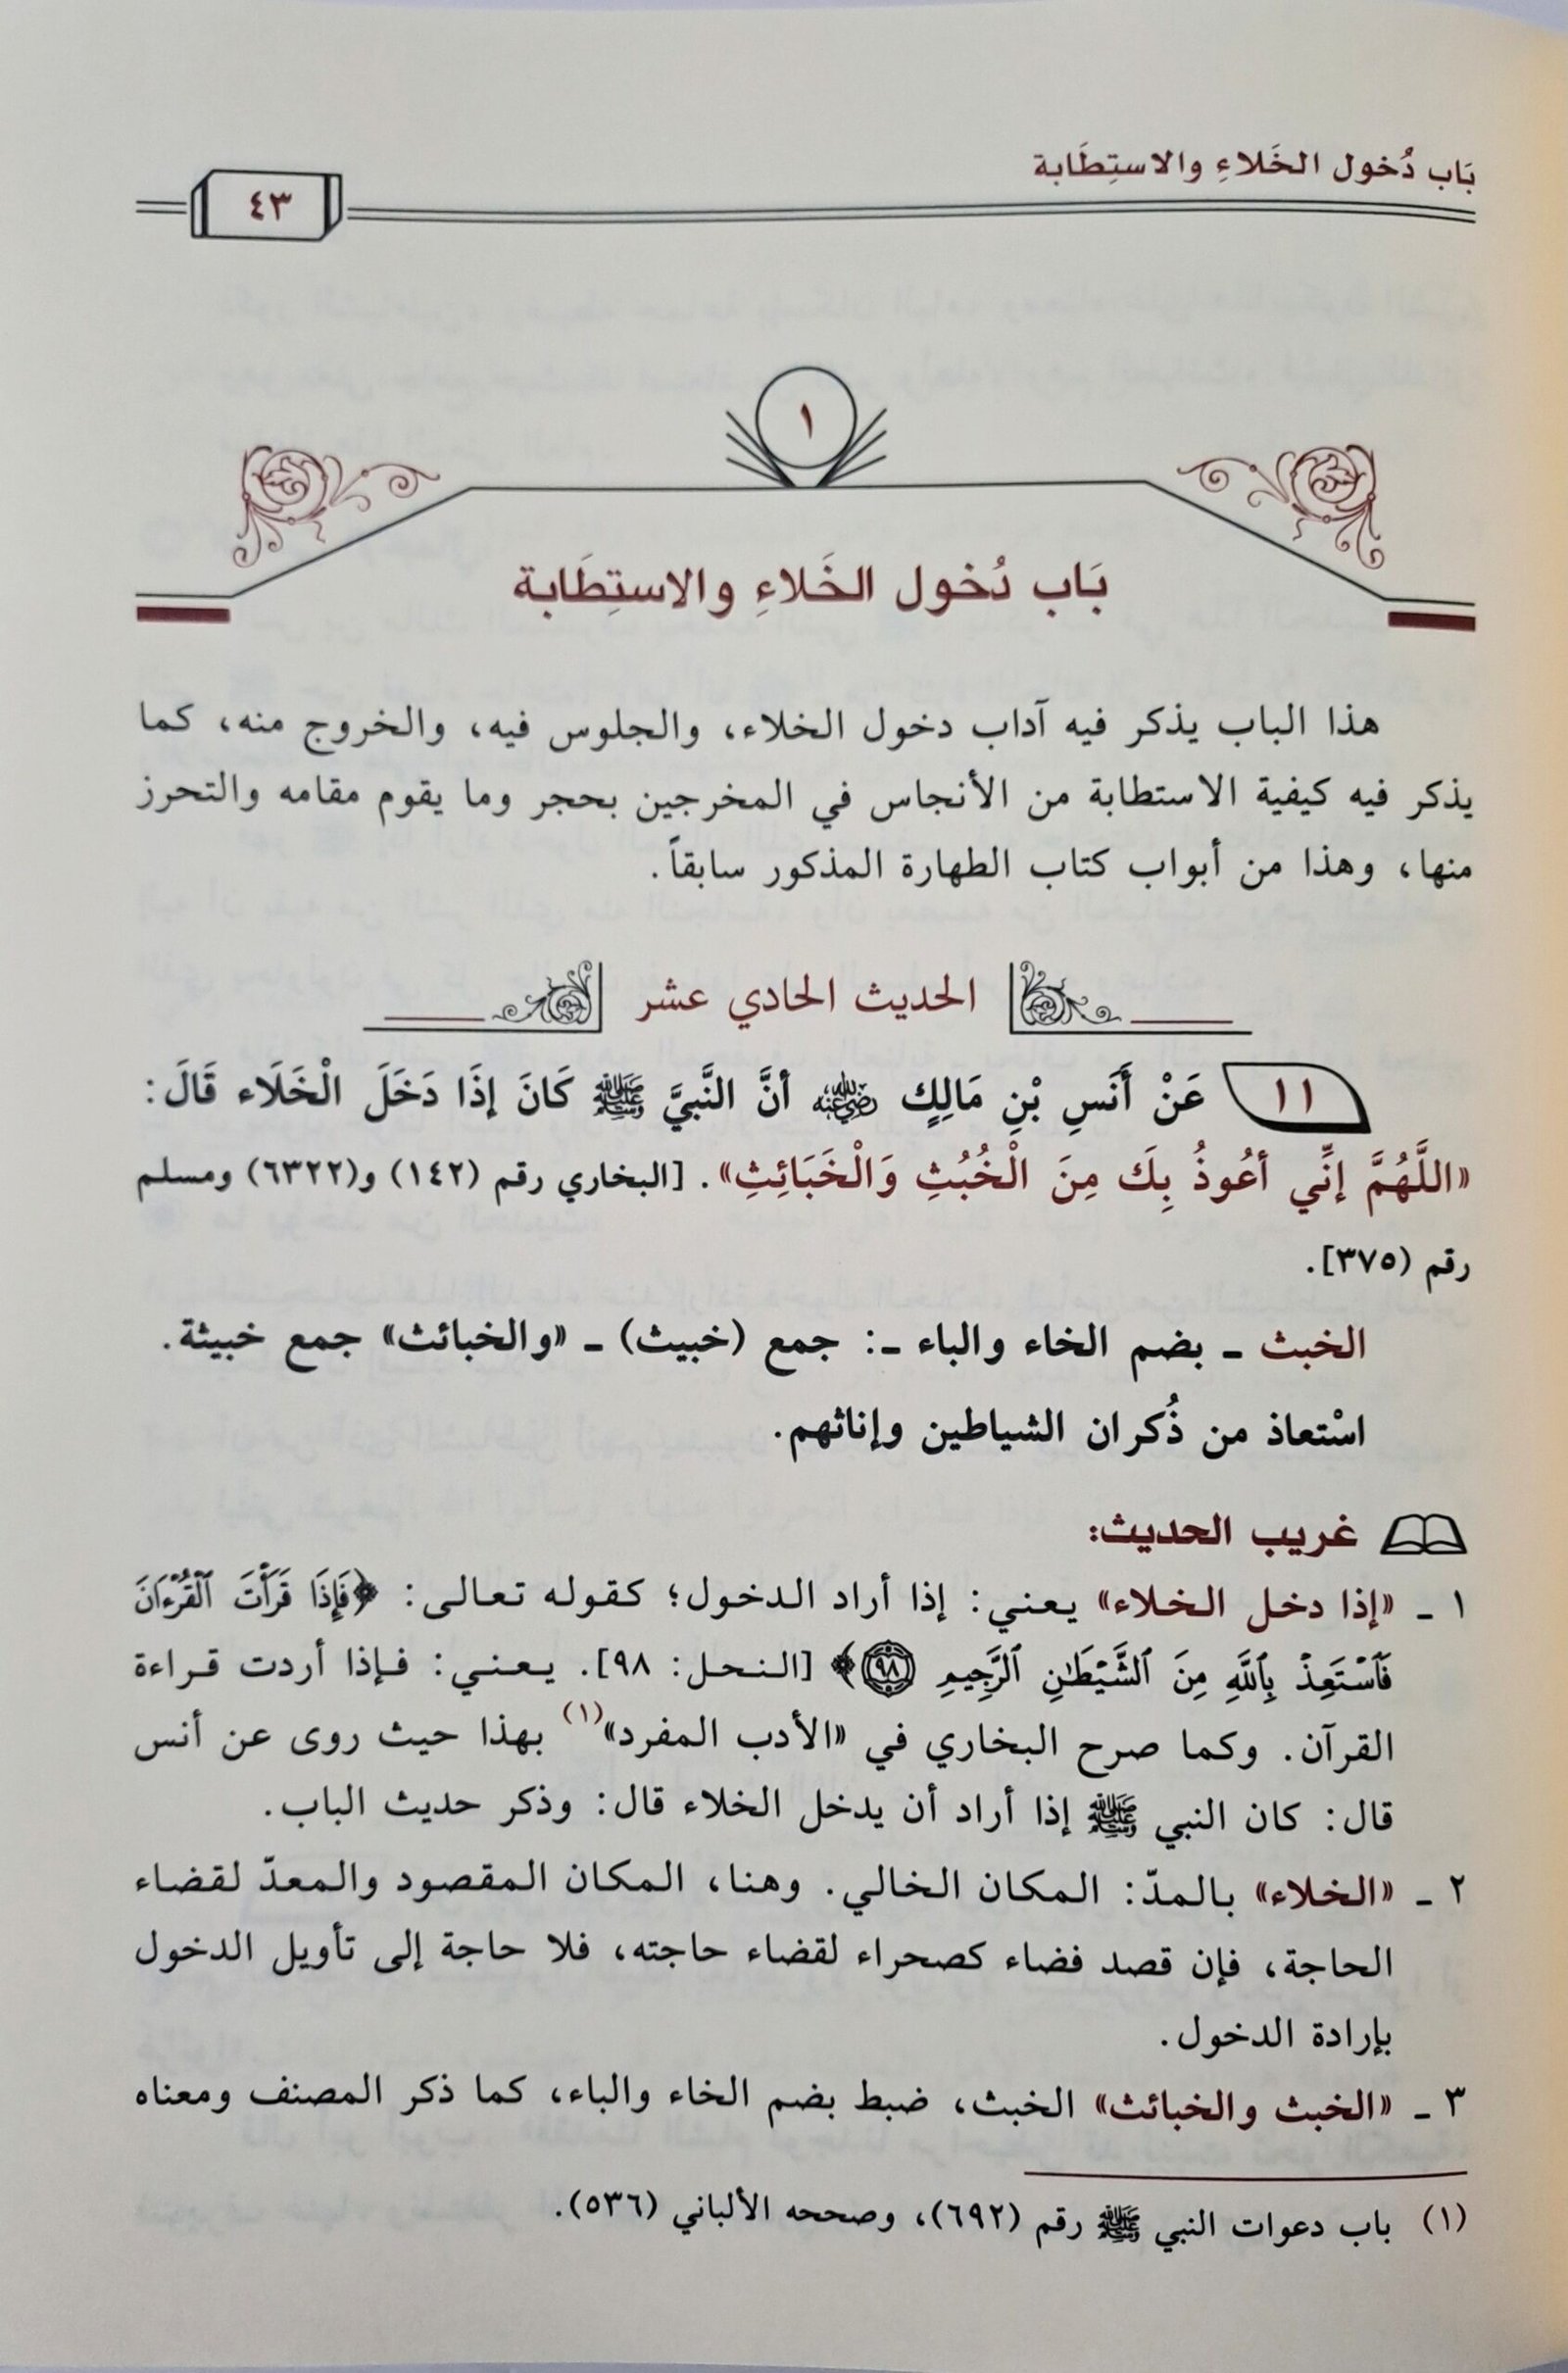 بَاب دُخول الخَلاءِ والاستِطَابة
٤٣
١
بَاب دُخول الخَلاءِ والاستِطَابة
هذا الباب يذكر فيه آداب دخول الخلاء، والجلوس فيه، والخروج منه، كما
يذكر فيه كيفية الاستطابة من الأنجاس في المخرجين بحجر وما يقوم مقامه والتحرز
منها، وهذا من أبواب كتاب الطهارة المذكور سابقاً.
الحديث الحادي عشر
١١ عَنْ أَنَسِ بْنِ مَالِكٍ رضي الله عنه أنَّ النَّبيَّ ﷺ كَانَ إذَا دَخَلَ الْخَلَاء قَالَ:
«اللَّهُمَّ إنِّي أعُوذُ بِكَ مِنَ الْخُبُثِ وَالْخَبَائِثِ». [البخاري رقم (١٤٢) و(٦٣٢٢) ومسلم
رقم (٣٧٥].
الخبث ـ بضم الخاء والباء ـ: جمع (خبيث) ـ «والخبائث» جمع خبيثة.
اسْتعاذ من ذُكران الشياطين وإناثهم.
غريب الحديث:
١ ـ «إذا دخل الخلاء» يعني: إذا أراد الدخول؛ كقوله تعالى: ﴿فَإِذَا قَرَأْتَ ٱلْقُرْءَانَ
فَٱسْتَعِذْ بِٱللَّهِ مِنَ ٱلشَّيْطَٰنِ ٱلرَّجِيمِ ٩٨﴾ [النحل: ٩٨]. يعني: فإذا أردت قراءة
القرآن. وكما صرح البخاري في «الأدب المفرد»(١) بهذا حيث روى عن أنس
قال: كان النبي ﷺ إذا أراد أن يدخل الخلاء قال: وذكر حديث الباب.
٢ ـ «الخلاء» بالمدّ: المكان الخالي. وهنا، المكان المقصود والمعدّ لقضاء
الحاجة، فإن قصد فضاء كصحراء لقضاء حاجته، فلا حاجة إلى تأويل الدخول
بإرادة الدخول.
٣ ـ «الخبث والخبائث» الخبث، ضبط بضم الخاء والباء، كما ذكر المصنف ومعناه
(١) باب دعوات النبي ﷺ رقم (٦٩٢)، وصححه الألباني (٥٣٦).